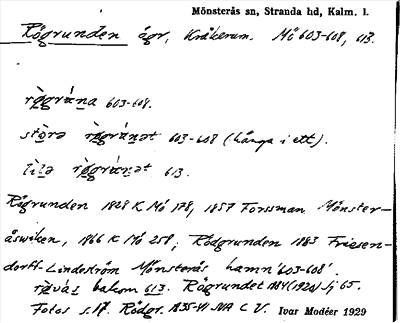 Mönsterås sn, Stranda hd, Kalm. l.
Rögrunden ågr, Kråkerum. Mö 603-608, 613.
603-608.
603-608 (hänga i ett).
613.
Rögrunden 1828 K Mö 178, 1857 Forssman Mönster-
åsviken, 1866 K Mö 258, Rödgrunden 1883 Friesen-
dorff-Lindeström Mönsterås hamn '603-608'.
bakom 613. Rögrundet 184(1920) Sj 65.
Fotos s. 17. Rödgr. 1835-41 SNA C V. Ivar Modéer 1929